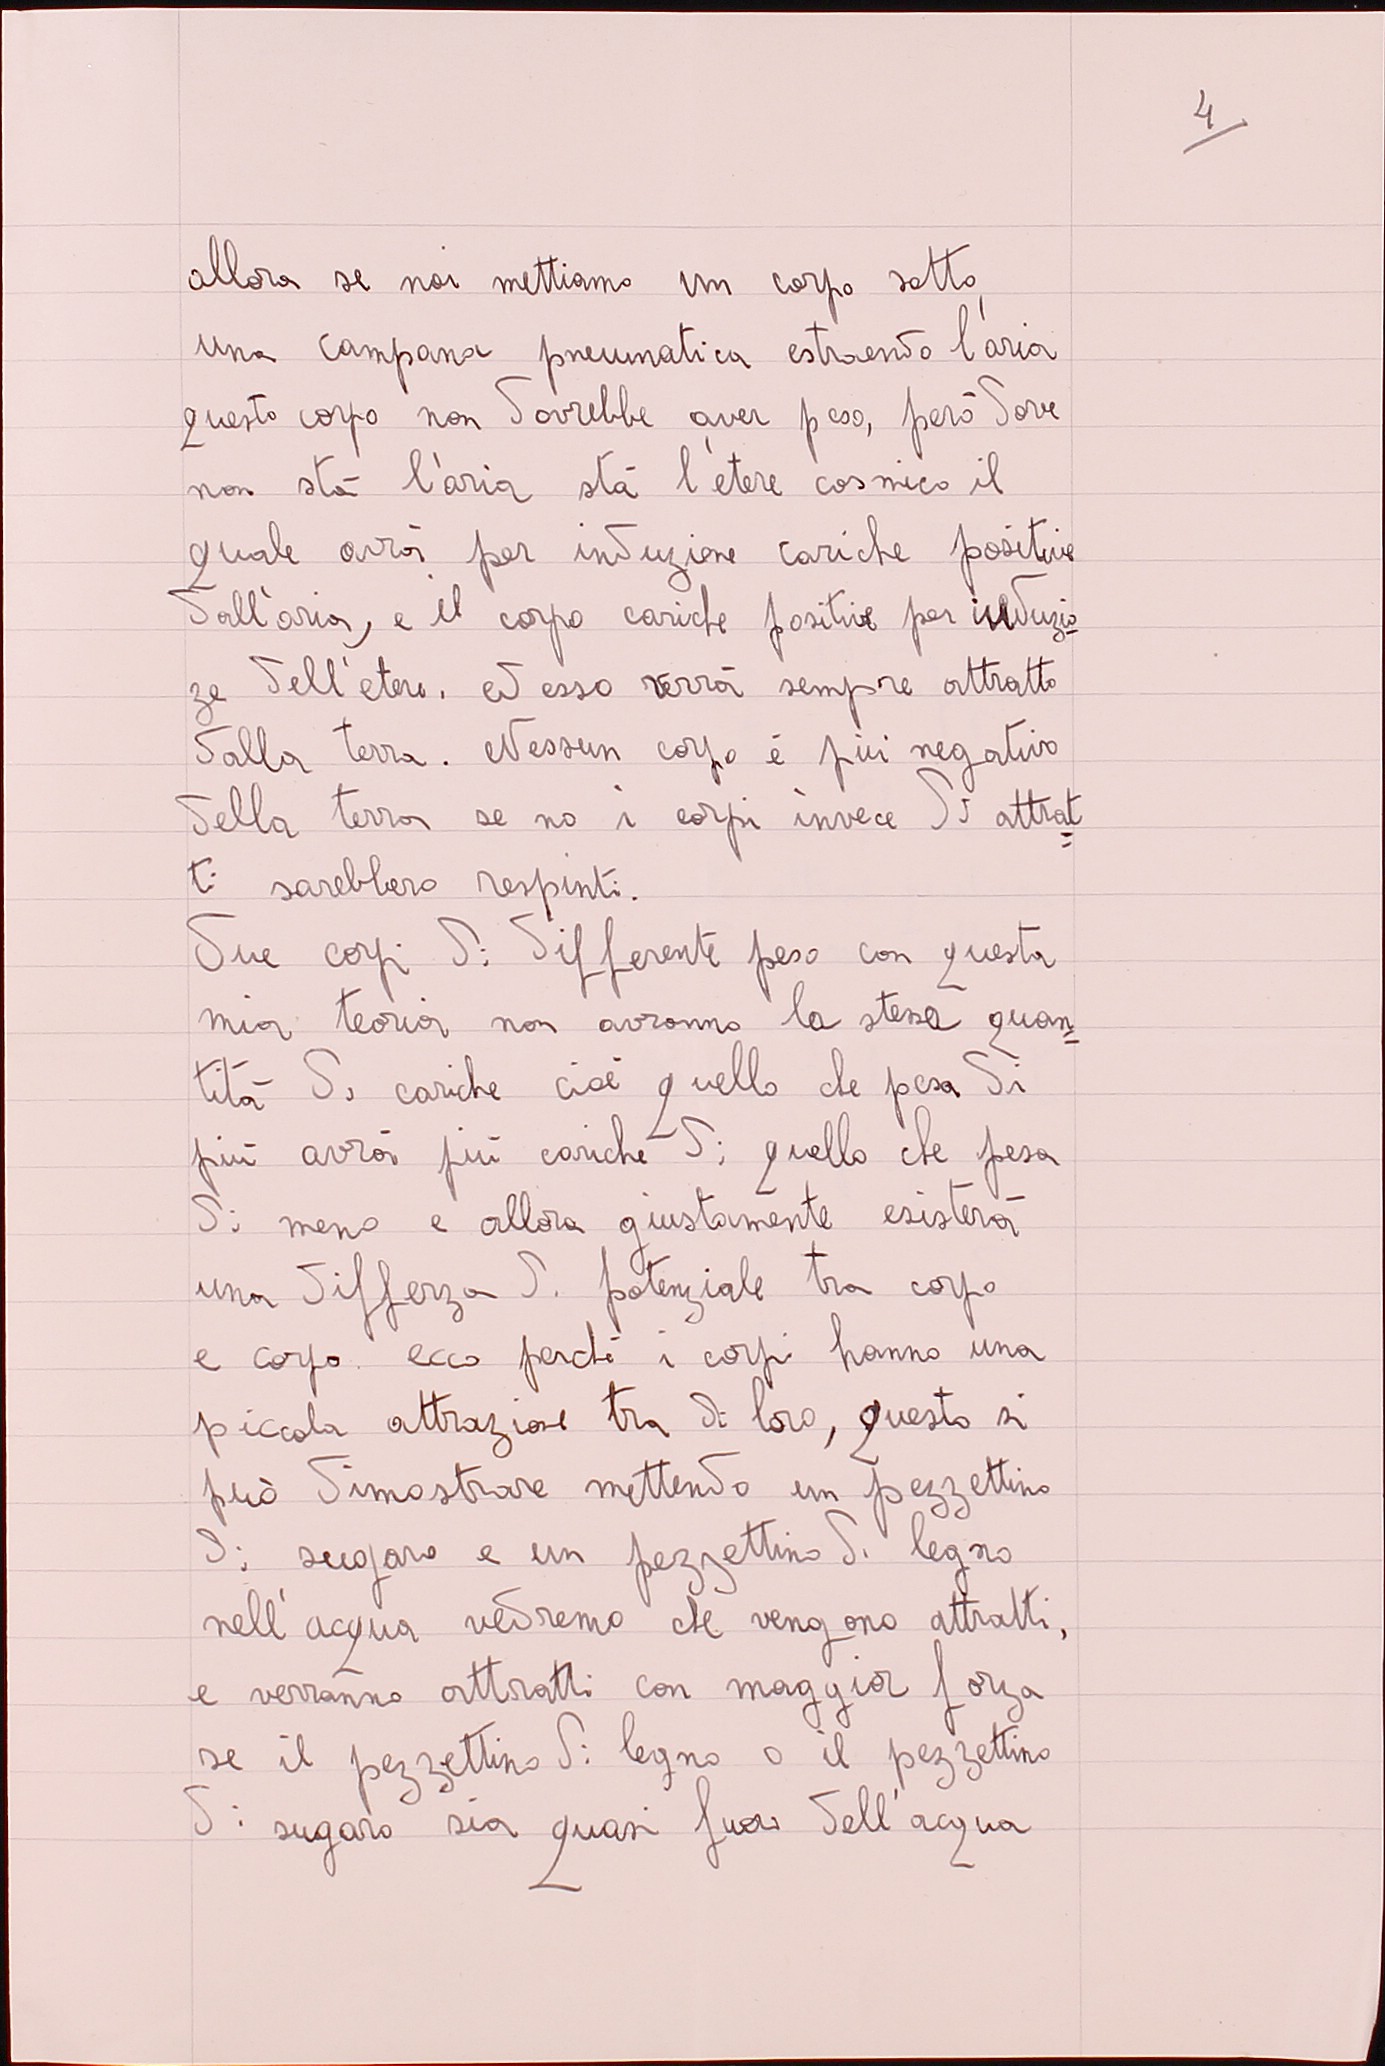 4
allora se noi mettiamo un corpo sotto
una campana pneumatica estraendo l'aria
questo corpo non dovrebbe aver peso, però dove
non stà l'aria stà l'etere cosmico il
quale avrà per induzione cariche positive
dall'aria, e il corpo cariche positive per induzio
ze dell'etere. ed esso verrà sempre attratto
dalla terra. Nessun corpo è più negativo
della terra se no i corpi invece di attrat=
ti sarebbero respinti.
Due corpi di differente peso con questa
mia teoria non avranno la stessa quan=
tità di cariche cioè quello che pesa di
più avrà più cariche di quello che pesa
di meno e allora giustamente esisterà
una differza di potenziale tra corpo
e corpo. ecco perchè i corpi hanno una
piccola attrazione tra di loro, questo si
può dimostrare mettendo un pezzettino
di sugaro e un pezzettino di legno
nell'acqua vedremo che vengono attratti,
e verranno attratti con maggior forza
se il pezzettino di legno o il pezzettino
di sugaro sia quasi fuori dell'acqua